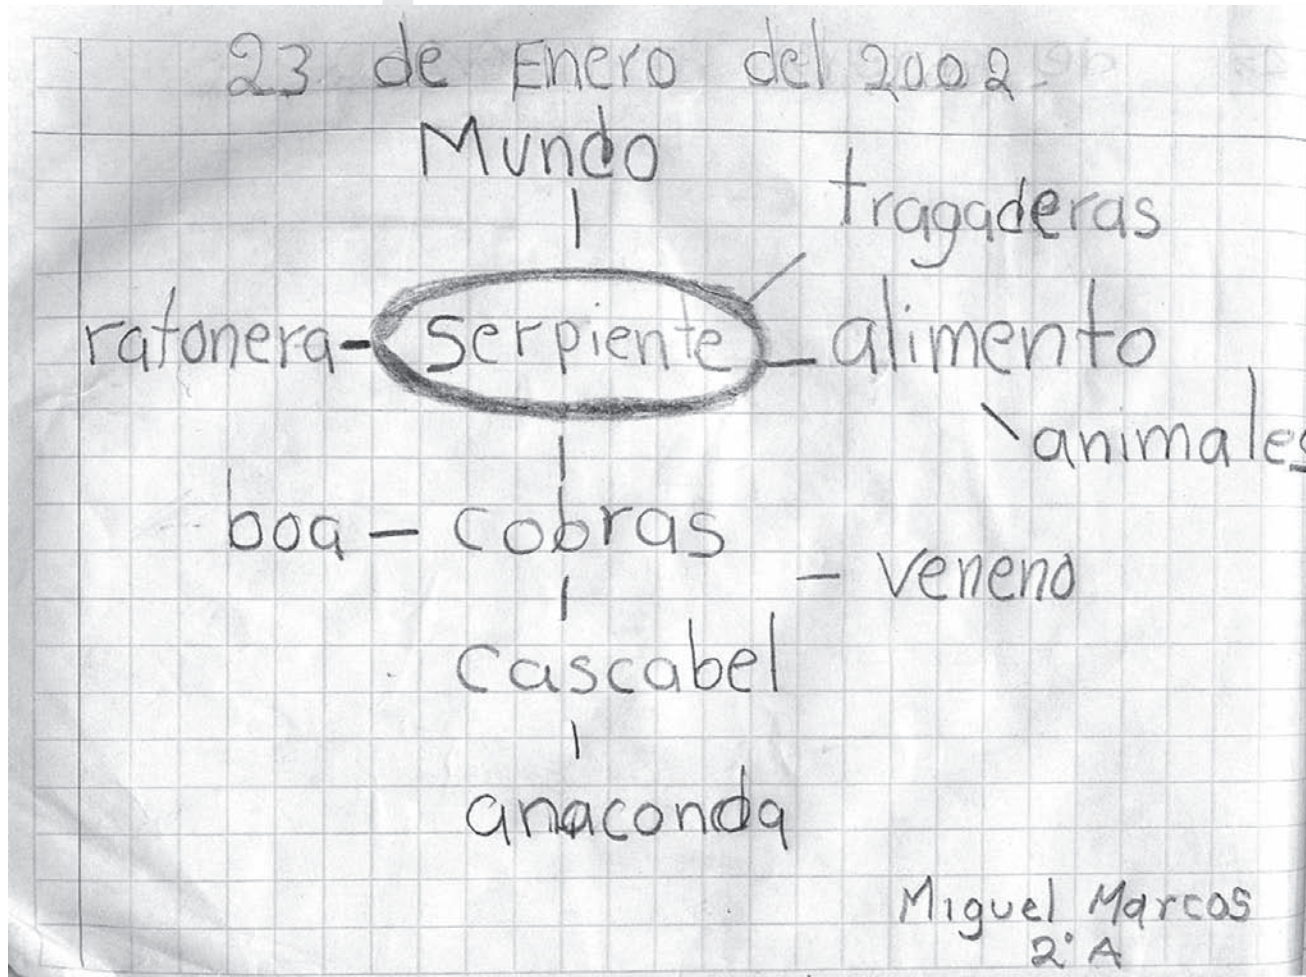 23 de Enero del 2002.
Mundo
tragaderas
ratonera - serpiente - alimento
animales
boa - cobras
- veneno
Cascabel
anaconda
Miguel Marcos
2° A